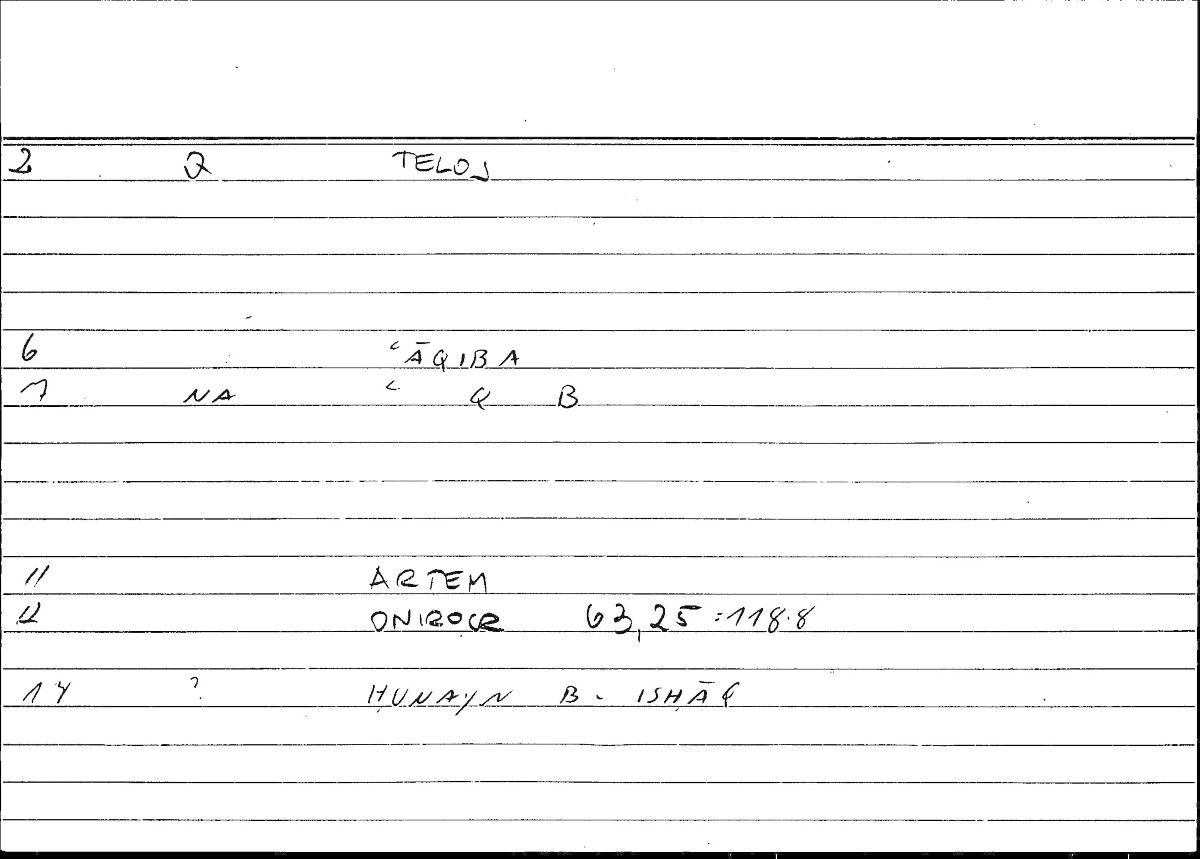 2 Q TELOS
6 ʿĀQIBA
7 NA ʿ Q B
11 ARTEM
12 ONIROCR 63,25 : 118.8
14 ? ḤUNAYN B. ISḤĀQ